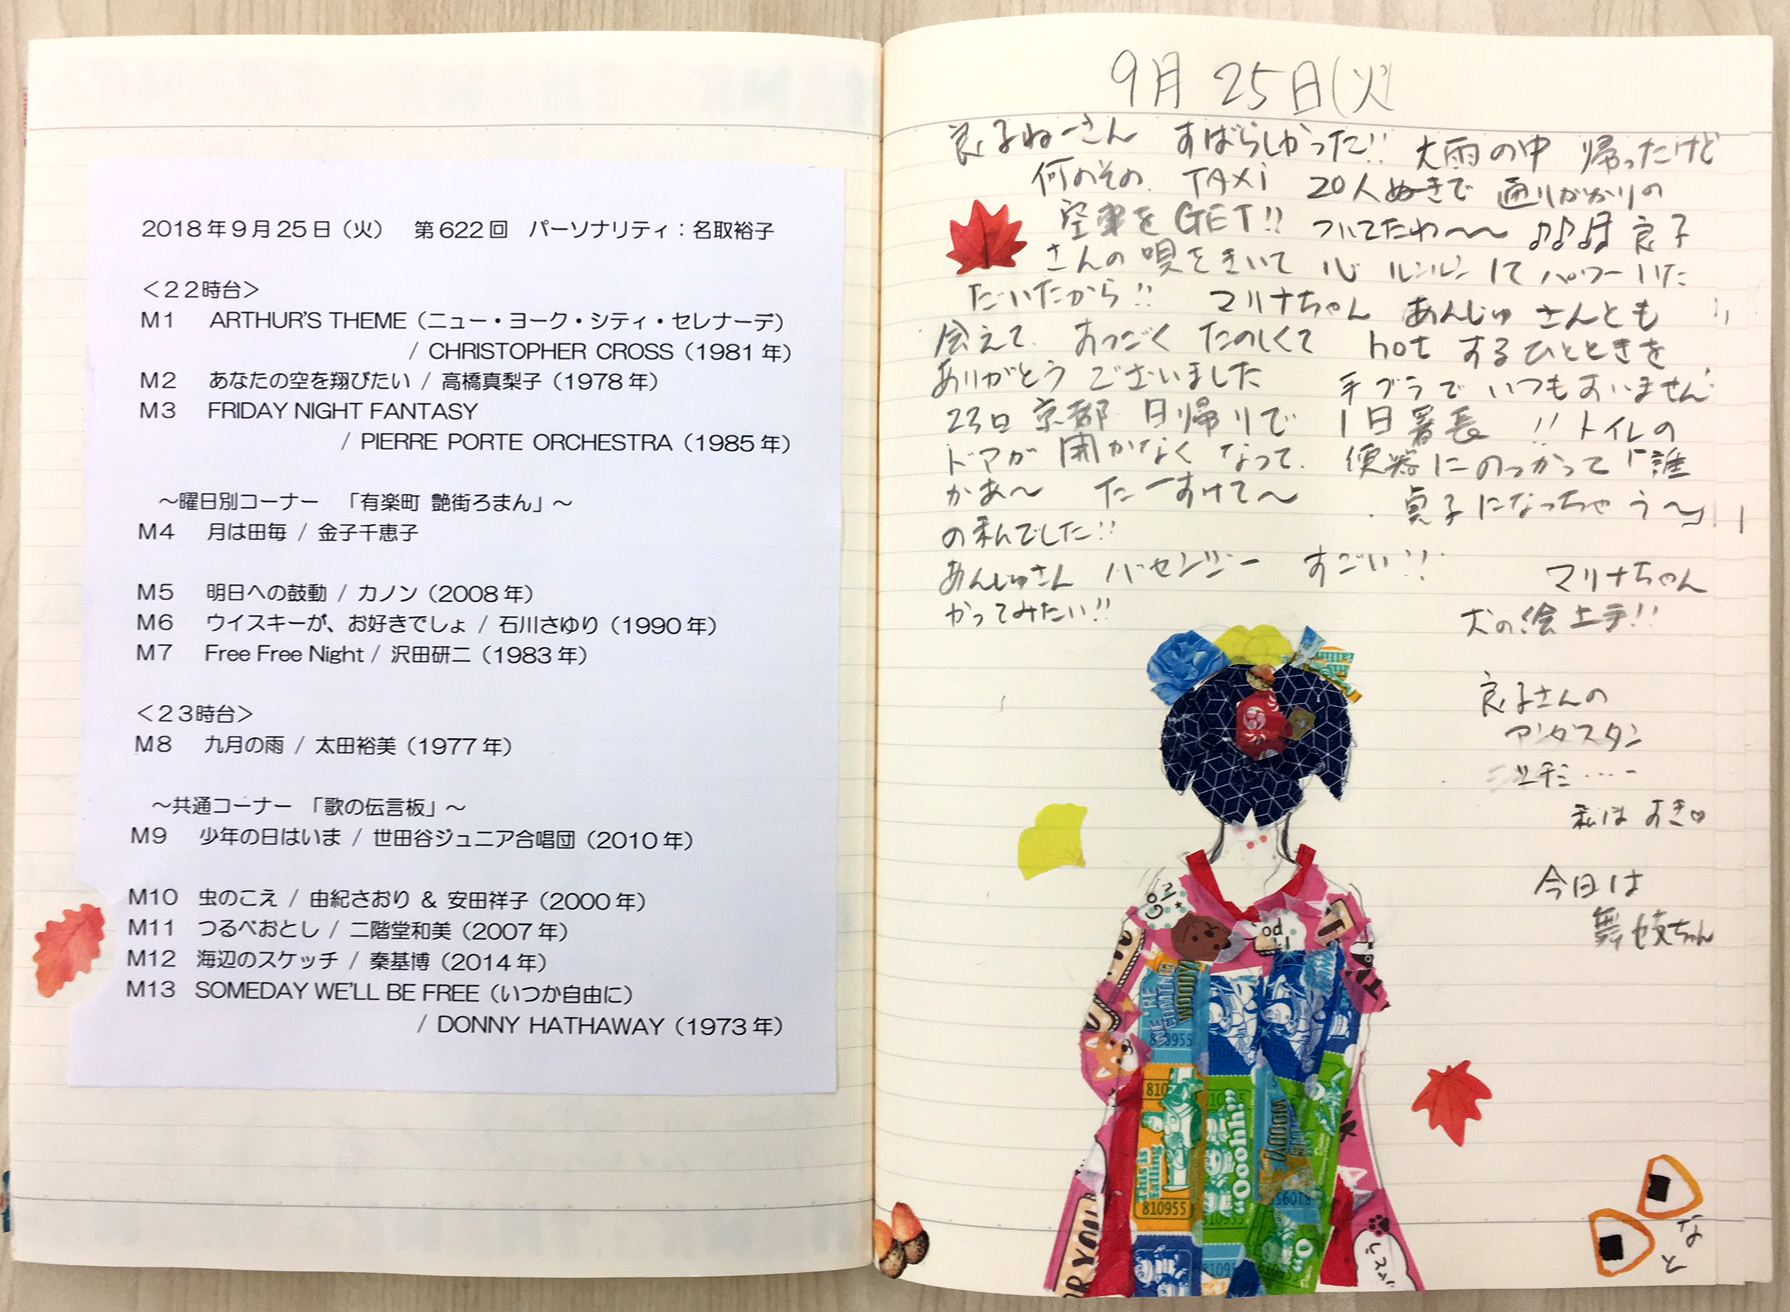 2018年9月25日（火）　第622回　パーソナリティ：名取裕子
＜２２時台＞
M1　ARTHUR'S THEME（ニュー・ヨーク・シティ・セレナーデ）
/ CHRISTOPHER CROSS（1981年）
M2　あなたの空を翔びたい / 高橋真梨子（1978年）
M3　FRIDAY NIGHT FANTASY
/ PIERRE PORTE ORCHESTRA（1985年）
～曜日別コーナー　「有楽町 艶街ろまん」～
M4　月は田毎 / 金子千恵子
M5　明日への鼓動 / カノン（2008年）
M6　ウイスキーが、お好きでしょ / 石川さゆり（1990年）
M7　Free Free Night / 沢田研二（1983年）
＜２３時台＞
M8　九月の雨 / 太田裕美（1977年）
～共通コーナー　「歌の伝言板」～
M9　少年の日はいま / 世田谷ジュニア合唱団（2010年）
M10　虫のこえ / 由紀さおり ＆ 安田祥子（2000年）
M11　つるべおとし / 二階堂和美（2007年）
M12　海辺のスケッチ / 秦基博（2014年）
M13　SOMEDAY WE'LL BE FREE（いつか自由に）
/ DONNY HATHAWAY（1973年）
9月 25日(火)
良子ねーさん すばらしかった!! 大雨の中 帰ったけど
何のその. TAXi 20人ぬきで 通りがかりの
空車を GET!! ついてたわ〜〜 ♪♪♬ 良子
さんの唄をきいて 心 ルンルン して パワー いた
だいたから!! マリナちゃん あんじゅ さんとも
会えて. すっごく たのしくて hot するひとときを
ありがとう ございました 手ブラで いつもすいません!
23日 京都 日帰りで 1日署長 !! トイレの
ドアが 開かなく なって. 便器にのっかって「誰
かあ〜 たーすけて〜 貞子になっちゃう〜」!!
の巻でした!!
あんじゅさん バセンジー すごい!!
かってみたい!!
マリナちゃん
犬の絵 上手!!
良子さんの
アンダスタン
私は すき♡
今日は
舞妓ちゃん
WE'RE COMING WOODY
810955
"Ooohh!"
810955
なと